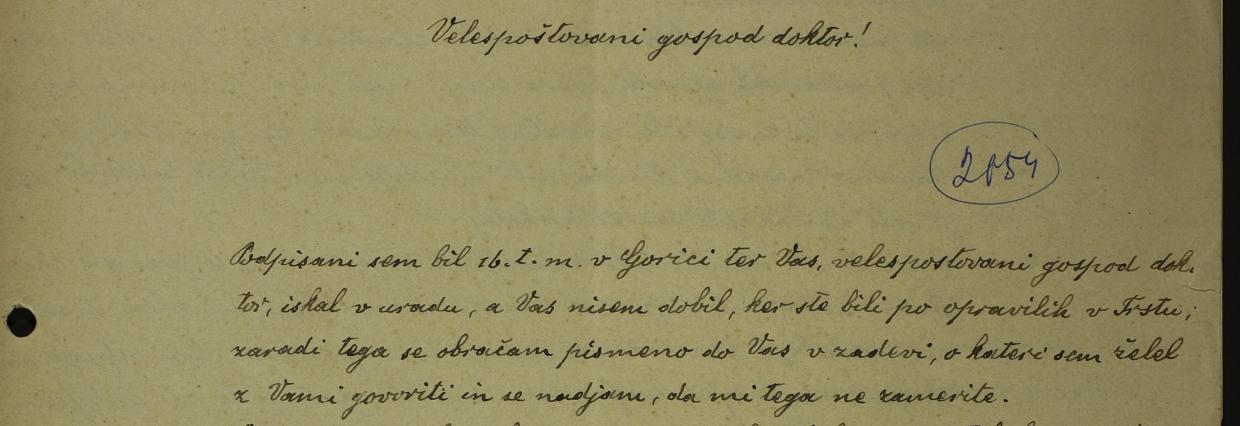 Velespoštovani gospod doktor!
2154
Podpisani sem bil 16. t. m. v Gorici ter Vas, velespostovani gospod dok-
tor, iskal v uradu, a Vas nisem dobil, ker ste bili po opravilih v Trstu;
zaradi tega se obračam pismeno do Vas v zadevi, o kateri sem želel
z Vami govoriti in se nadjam, da mi tega ne zamerite.